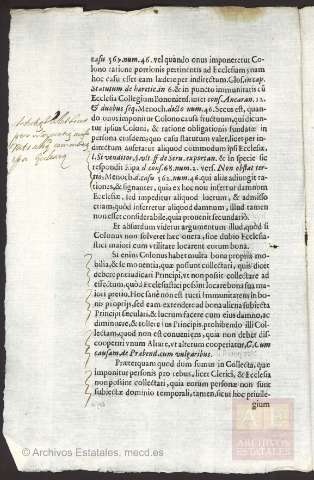 casu 367. num. 46. vel quando onus imponeretur Co-
lono ratione portionis pertinentis ad Ecclesiam, nam
hoc casu esset eam lædere per indirectum. Glos. in cap.
Statutum de hæretic. in 6. & in puncto immunitatis cū
Ecclesia Collegij Bononiens. inuēt. conf. Ancaran. 12.
& duobus seq. Menoch. dicto num. 46. Secus est, quan-
do onus imponitur Colono casu fructum, quī dicun-
tur ipsius Coloni, & ratione obligationis fundatæ in
persona eiusdem: quo casu statutum valet, licet per in-
directum auferatur aliquod commodum ipsi Ecclesiæ.
l. Si venditor, §. vlt. ff. de Seru. exportan. & in specie sic
respondit Papa d. conf. 68. num. 2. vers. Non obstat ter-
tio, Menoch. d. casu 362. num. 46. qui alias adiungit ra-
tiones, & signanter, quia ex hoc non infertur damnum
Ecclesiæ, sed impeditur aliquod lucrum, & admisso
etiam, quod inferretur aliquod damnum, illud tamen
non esset considerabile, quia prouenit secundariò.
Et absurdum videtur argumentum illud, quòd si
Colonus non solueret hæc onera, sine dubio Ecclesia-
stici maiori cum vtilitate locarent eorum bona.
Si enim Colonus habet multa bona propria mo-
bilia, & se mouentia, quæ possunt collectari, quis dicet
debere præiudicari Principi, vt non possit collectare ad
effectum, quòd Ecclesiastici possint locare bona sua ma-
iori pretio. Hoc sanè non est tueri Immunitatem in bo-
nis proprijs, sed eam extendere ad bona aliena subiecta
Principi sæculari, & lucrum facere cum eius damno, ac
diminuere, & tollere ius Principis, prohibendo illi Col-
lectam, quod non est conueniens, quia non debet dis-
cooperiri vnum Altare, vt alterum cooperiatur, C. Cum
causam, de Præbend. cum vulgaribus.
Præterquam quòd dum sumus in Collecta, quæ
imponitur personis pro rebus, licet Clerici, & Ecclesia
non possint collectari, quia eorum personæ non sunt
subiectæ dominio temporali, tamen, sicut hoc priuile-
gium
ARCHIVOS
ESTATALES
© Archivos Estatales, mecd.es